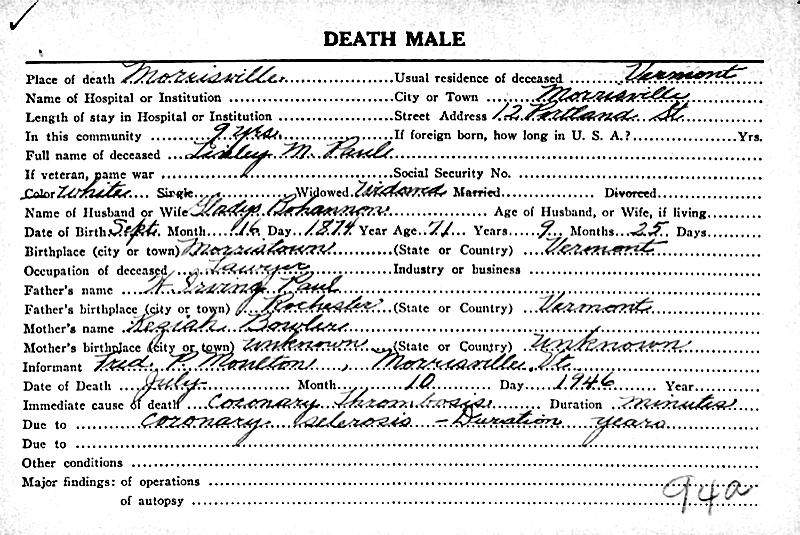 DEATH MALE
Place of death Morrisville Usual residence of deceased Vermont
Name of Hospital or Institution City or Town Morrisville
Length of stay in Hospital or Institution Street Address 12 Portland St
In this community 9 yrs. If foreign born, how long in U. S. A.? Yrs.
Full name of deceased M. Paul
If veteran, name war Social Security No.
Color White Single Widowed Widowed Married Divorced
Name of Husband or Wife Gladys Bohannon Age of Husband, or Wife, if living
Date of Birth Sept. Month 16 Day 1874 Year Age 71 Years 9 Months 25 Days
Birthplace (city or town) Morristown (State or Country) Vermont
Occupation of deceased Lawyer Industry or business
Father's name Irving Paul
Father's birthplace (city or town) Rochester (State or Country) Vermont
Mother's name Keziah Bowler
Mother's birthplace (city or town) unknown (State or Country) Unknown
Informant Fred P. Moulton, Morrisville, Vt.
Date of Death July Month 10 Day 1946 Year
Immediate cause of death Coronary Thrombosis Duration minutes
Due to Coronary sclerosis - Duration years
Due to
Other conditions
Major findings: of operations
of autopsy
94a